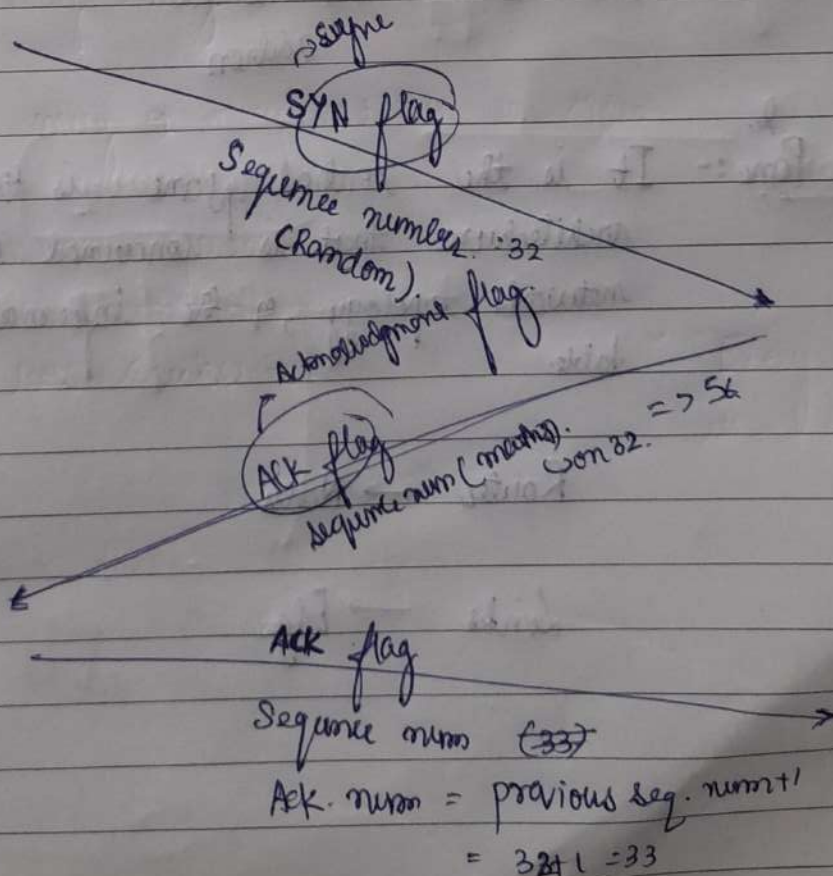 SYN flag
Sequence number :32
(Random).
Acknowledgment flag.
ACK flag
sequence num (maths). => 56
on 32.
ACK flag
Sequence num (33)
Ack. num = previous seq. num+1
= 32+1 =33